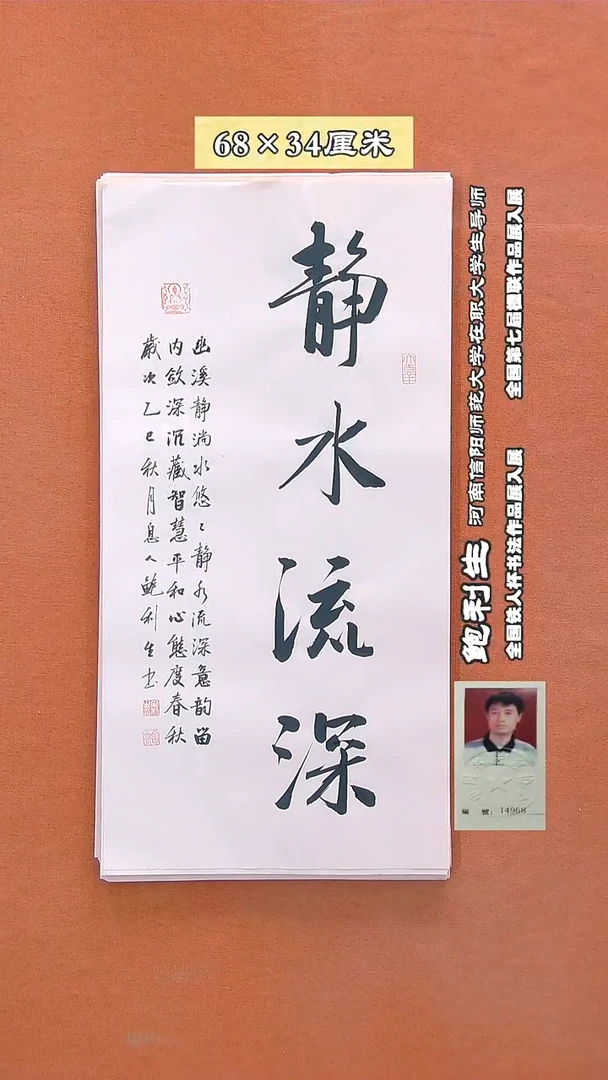 68×34厘米
静水流深
幽溪静淌水悠〻静水流深意韵留
内敛深沉藏智慧平和心態度春秋
歲次乙巳秋月息人鲍利生书
鲍利生 河南信阳师范大学在职大学生导师
全国铁人杯书法作品展入展 全国第七届楹联作品展入展
编號:14968